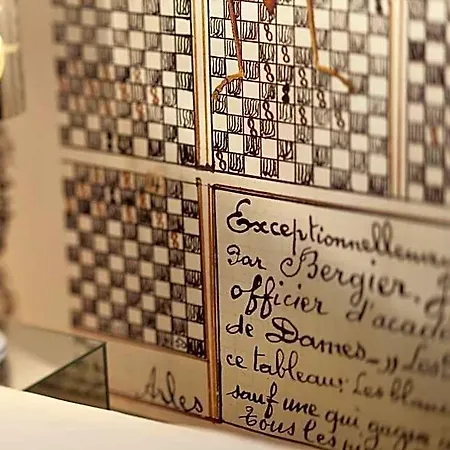 Exceptionnellement
Par Bergier,
officier d'acad
de Dames_ ,, Les
ce tableau: Les blan
sauf une qui gagne
tous les
Arles